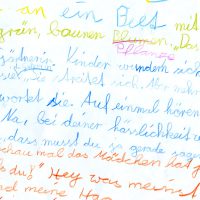 an ein Beet mit
grün, baunen Blumen "Da
Pflanze
gärtnerin. Kinder wundern sich
streitet sich, Aber
wortet sie. Auf einmal hören
Na, bei deiner hässlichkeit
dass musst du ja gerade sagen
schau mal das Mädchen hat g
du!" Hey was meinst
und meine Haa